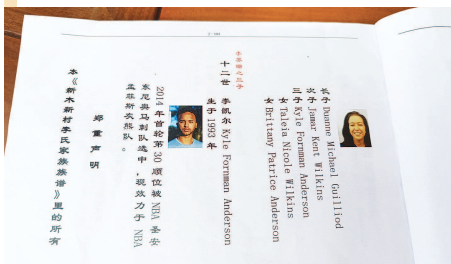 长子 Duanne Michael Guilliod
次子 Jamar Kent Wilkins
三子 Kyle Fornman Anderson
女 Taleia Nicole Wilkins
女 Brittany Patrice Anderson
之三子
十二世 李凯尔 Kyle Fornman Anderson
生于 1993 年
2014 年首轮第 30 顺位被 NBA 圣安
东尼奥马刺队选中，现效力于 NBA
孟菲斯灰熊队。
郑重声明
本《新木新村李氏家族族谱》里的所有